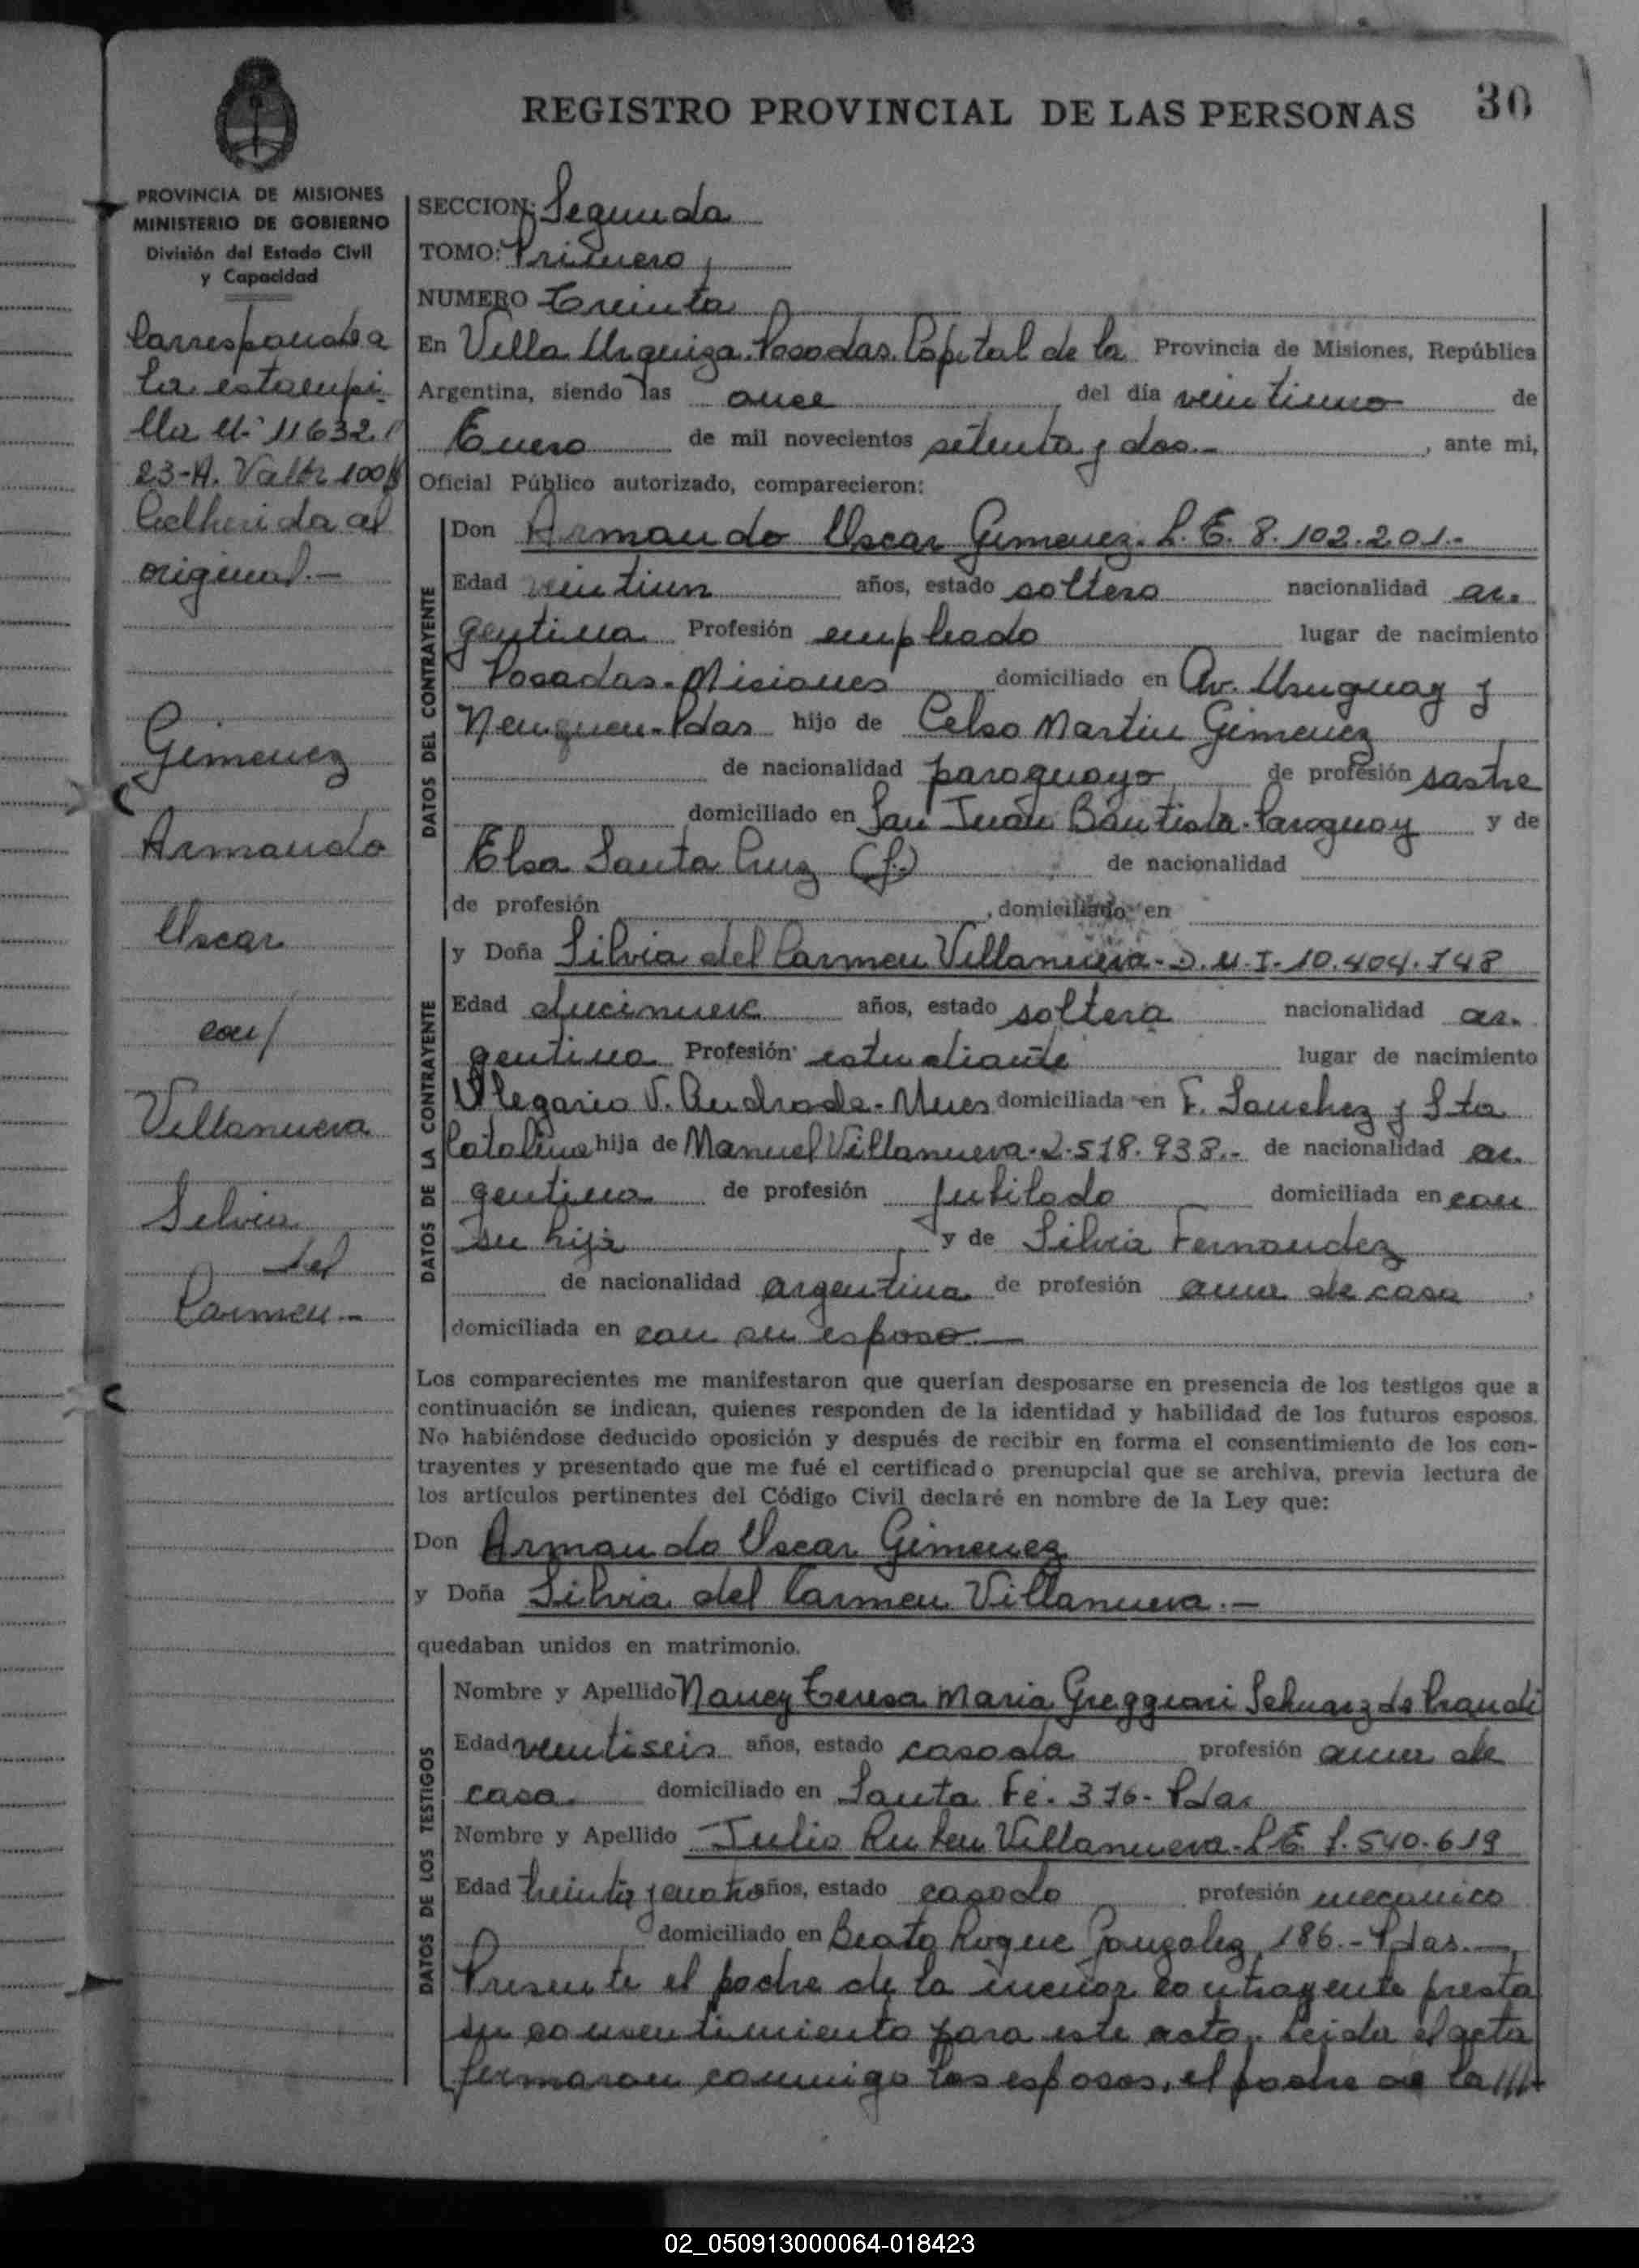 REGISTRO PROVINCIAL DE LAS PERSONAS
30
PROVINCIA DE MISIONES
MINISTERIO DE GOBIERNO
División del Estado Civil
y Capacidad
Corresponde a
la estampi
lla Nº 11632.1
23-A. Valor 100$
Adherida al
original.-
Gimenez
Armando
Oscar
con/
Villanueva
Silvia
del
Carmen.-
SECCION: Segunda
TOMO: Primero
NUMERO Treinta
En Villa Urquiza. Posadas. Capital de la Provincia de Misiones, República
Argentina, siendo las once del día veintiuno de
Enero de mil novecientos setenta y dos.- , ante mi,
Oficial Público autorizado, comparecieron:
DATOS DEL CONTRAYENTE
Don Armando Oscar Gimenez. L.E. 8.102.201.-
Edad veintiun años, estado soltero nacionalidad ar.
gentina Profesión empleado lugar de nacimiento
Posadas. Misiones domiciliado en Av. Uruguay y
Neuquen. Pdas hijo de Celso Martin Gimenez
de nacionalidad paraguayo de profesión sastre
domiciliado en San Juan Bautista. Paraguay y de
Elsa Santa Cruz (f.) de nacionalidad
de profesión , domiciliado en
DATOS DE LA CONTRAYENTE
y Doña Silvia del Carmen Villanueva. D.N.I. 10.404.748
Edad diecinueve años, estado soltera nacionalidad ar.
gentina Profesión estudiante lugar de nacimiento
Olegario V. Andrade. Mnes domiciliada en F. Sanchez y Sta
Catalina hija de Manuel Villanueva. 2.518.938.- de nacionalidad ar.
gentina de profesión jubilado domiciliada en con
su hija y de Silvia Fernandez
de nacionalidad argentina de profesión ama de casa ,
domiciliada en con su esposo.-
Los comparecientes me manifestaron que querían desposarse en presencia de los testigos que a
continuación se indican, quienes responden de la identidad y habilidad de los futuros esposos.
No habiéndose deducido oposición y después de recibir en forma el consentimiento de los con-
trayentes y presentado que me fué el certificado prenupcial que se archiva, previa lectura de
los artículos pertinentes del Código Civil declaré en nombre de la Ley que:
Don Armando Oscar Gimenez
y Doña Silvia del Carmen Villanueva.-
quedaban unidos en matrimonio.
DATOS DE LOS TESTIGOS
Nombre y Apellido Nancy Teresa Maria de
Edad veintiseis años, estado casada profesión ama de
casa. domiciliado en Santa Fé. 376- Pdas
Nombre y Apellido Julio Ruben Villanueva. L.E. 7.540.619
Edad treinta y cuatro años, estado casado profesión mecanico
domiciliado en Beato Roque Gonzalez 186.- Pdas.-
Presente el padre de la menor contrayente presta
su consentimiento para este acto. Leida el acta
firmaron conmigo los esposos, el padre de la ///
02_050913000064-018423